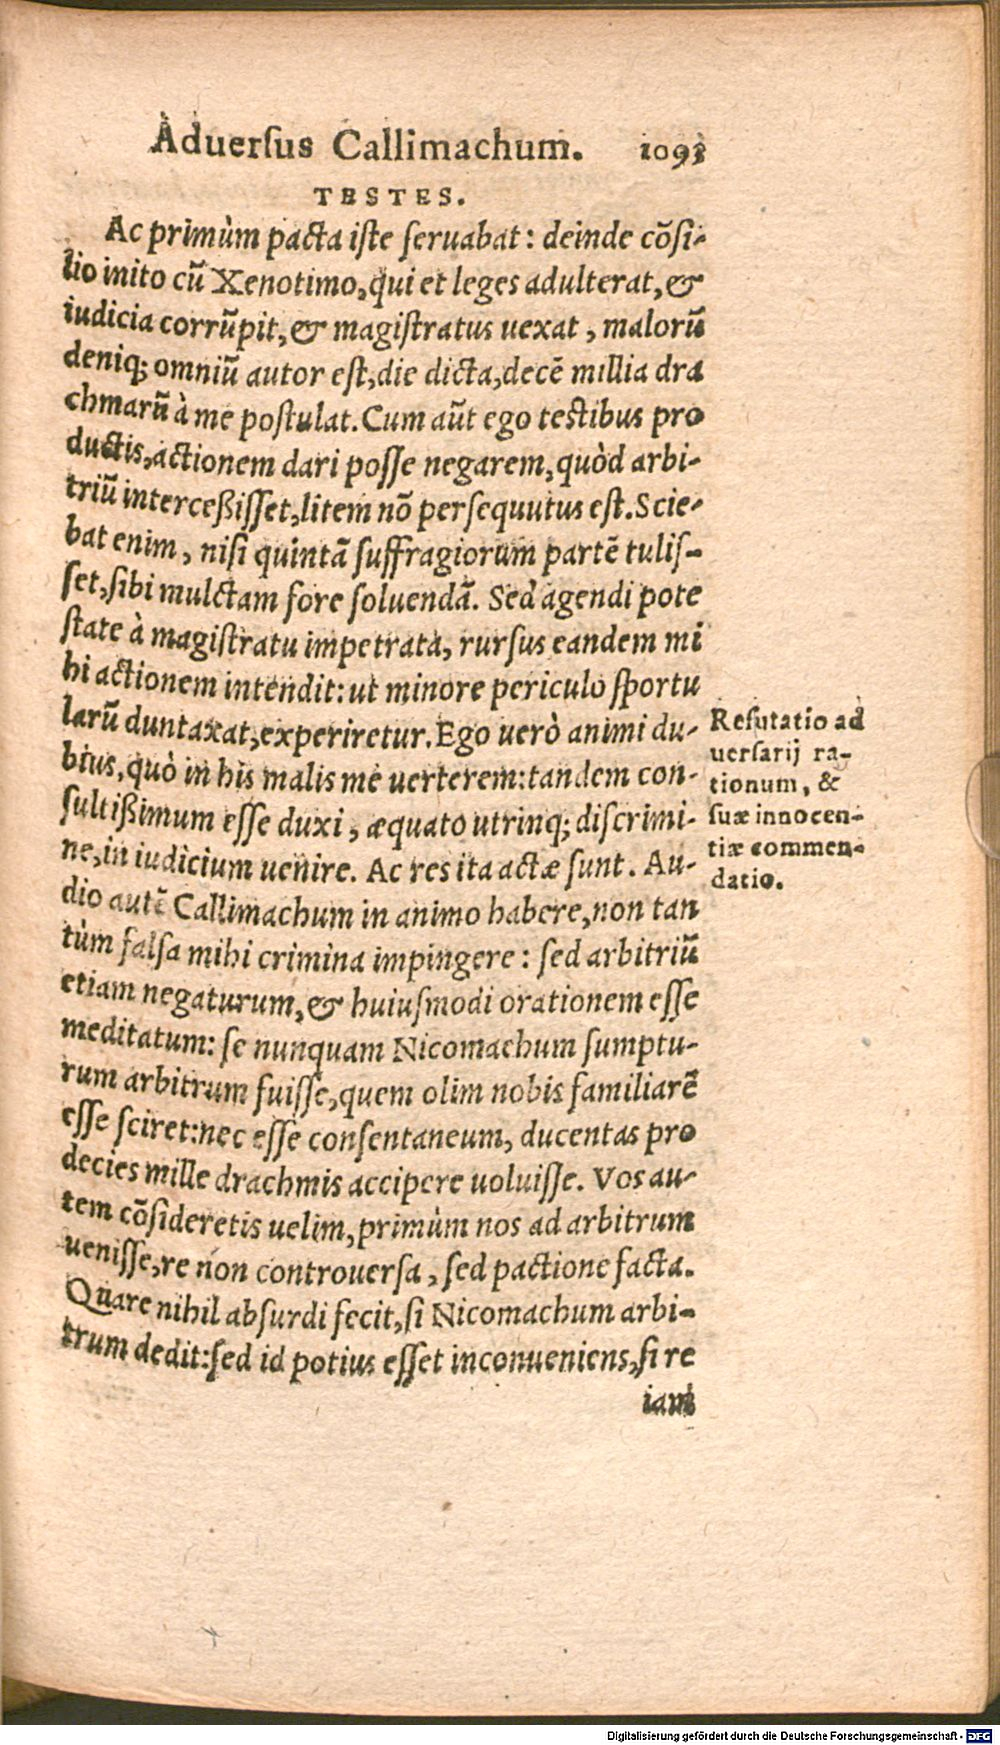 Aduerſus Callimachum. 1093
TESTES.
Ac primùm pacta iſte ſeruabat: deinde cõſi-
lio inito cũ Xenotimo, qui et leges adulterat, &
iudicia corrũpit, & magiſtratus uexat, malorũ
deniq; omniũ autor eſt, die dicta, decẽ millia dra
chmarũ à me poſtulat. Cum aũt ego teſtibus pro
ductis, actionem dari poſſe negarem, quòd arbi-
triũ interceßiſſet, litem nõ perſequutus eſt. Scie-
bat enim, niſi quintã ſuffragiorum partẽ tuliſ-
ſet, ſibi mulctam fore ſoluendã. Sed agendi pote
ſtate à magiſtratu impetrata, rurſus eandem mi
hi actionem intendit: ut minore periculo ſportu
larũ duntaxat, experiretur. Ego uerò animi du-
bius, quò in his malis me uerterem: tandem con-
ſultißimum eſſe duxi, æquato utrinq; diſcrimi-
ne, in iudicium uenire. Ac res ita actæ ſunt. Au-
dio autẽ Callimachum in animo habere, non tan
tùm falſa mihi crimina impingere: ſed arbitriũ
etiam negaturum, & huiuſmodi orationem eſſe
meditatum: ſe nunquam Nicomachum ſumptu-
rum arbitrum fuiſſe, quem olim nobis familiarẽ
eſſe ſciret: nec eſſe conſentaneum, ducentas pro
decies mille drachmis accipere uoluiſſe. Vos au-
tem cõſideretis uelim, primùm nos ad arbitrum
ueniſſe, re non controuerſa, ſed pactione facta.
Quare nihil abſurdi fecit, ſi Nicomachum arbi-
trum dedit: ſed id potius eſſet inconueniens, ſi re
iam
Refutatio ad
uerſarij ra-
tionum, &
ſuæ innocen-
tiæ commen-
datio.
Digitalisierung gefördert durch die Deutsche Forschungsgemeinschaft - DFG